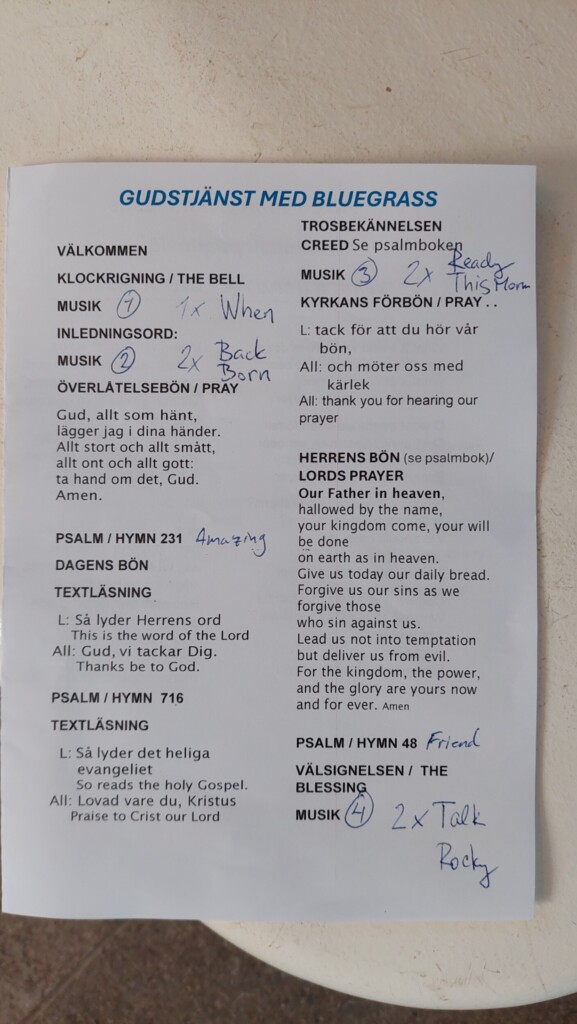 GUDSTJÄNST MED BLUEGRASS
VÄLKOMMEN
KLOCKRIGNING / THE BELL
MUSIK 1 1x When
INLEDNINGSORD:
MUSIK 2 2x Back
Born
ÖVERLÅTELSEBÖN / PRAY
Gud, allt som hänt,
lägger jag i dina händer.
Allt stort och allt smått,
allt ont och allt gott:
ta hand om det, Gud.
Amen.
PSALM / HYMN 231 Amazing
DAGENS BÖN
TEXTLÄSNING
L: Så lyder Herrens ord
This is the word of the Lord
All: Gud, vi tackar Dig.
Thanks be to God.
PSALM / HYMN 716
TEXTLÄSNING
L: Så lyder det heliga
evangeliet
So reads the holy Gospel.
All: Lovad vare du, Kristus
Praise to Crist our Lord
TROSBEKÄNNELSEN
CREED Se psalmboken
MUSIK 3 2x Ready
This Morn
KYRKANS FÖRBÖN / PRAY . .
L: tack för att du hör vår
bön,
All: och möter oss med
kärlek
All: thank you for hearing our
prayer
HERRENS BÖN (se psalmbok)/
LORDS PRAYER
Our Father in heaven,
hallowed by the name,
your kingdom come, your will
be done
on earth as in heaven.
Give us today our daily bread.
Forgive us our sins as we
forgive those
who sin against us.
Lead us not into temptation
but deliver us from evil.
For the kingdom, the power,
and the glory are yours now
and for ever. Amen
PSALM / HYMN 48 Friend
VÄLSIGNELSEN / THE
BLESSING
MUSIK 4 2x Talk
Rocky